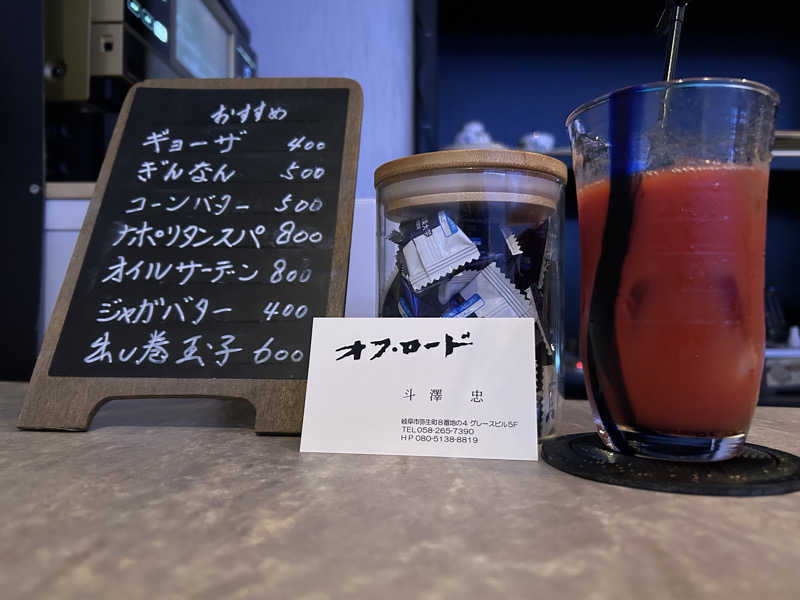 おすすめ
ギョーザ 400
ぎんなん 500
コーンバター 500
ナポリタンスパ 800
オイルサーデン 800
ジャガバター 400
出し巻玉子 600
オフ・ロード
斗澤 忠
岐阜市弥生町8番地の4 グレースビル5F
TEL 058-265-7390
HP 080-5138-8819